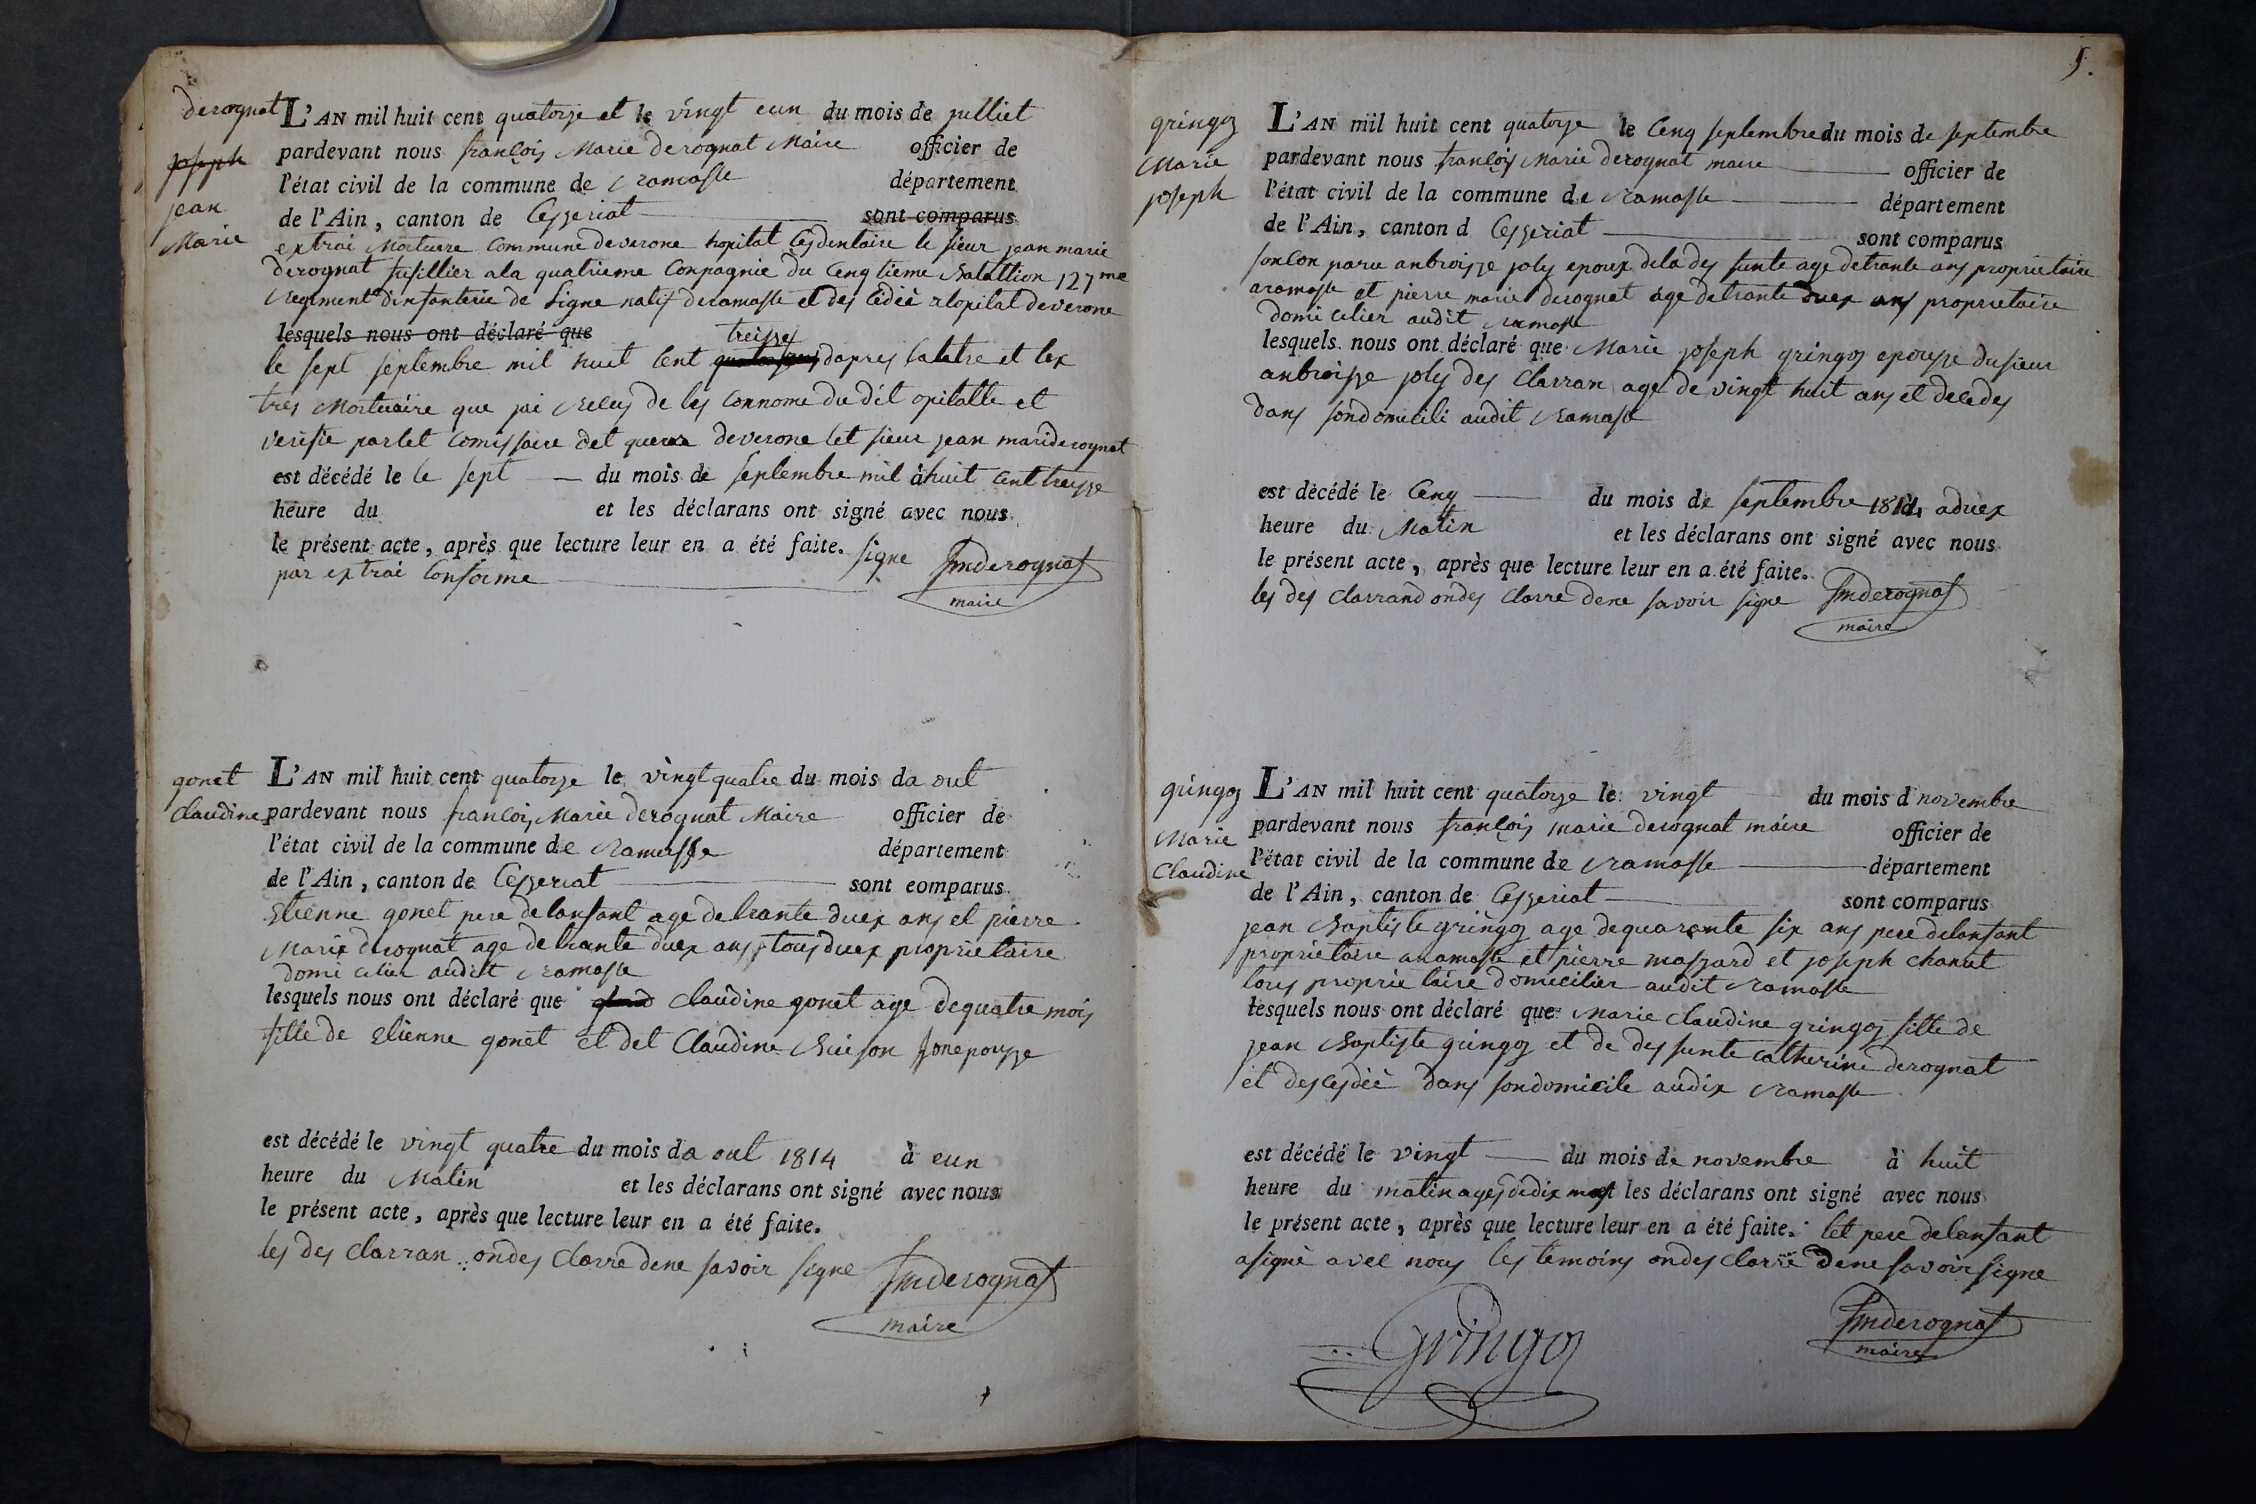 derognat
joseph
jean
Marie
L'AN mil huit cent quatorze et le vingt eun du mois de julliet
pardevant nous françois Marie derognat Maire officier de
l'état civil de la commune de ramasse département
de l'Ain, canton de Cesseriat sont comparus
extrai Mortuere commune de verone hopital Cesdentaire le sieur jean marie
derognat fusillier ala quatrieme Conpagnie du Cenqtieme Batallion 127me
regiment d'infanterie de Ligne natif deramasse et des cédié alopital deverone
lesquels nous ont déclaré que
treisse
le sept septembre mil huit Cent dapres laletre et lex
tres Mortuaire que jai recus de les Connome du dit opitalle et
verifie par let Comissaire det querre deverone let sieur jean mariderognat
est décédé le le sept du mois de septembre mil à huit Cent treisse
heure du et les déclarans ont signé avec nous
le présent acte, après que lecture leur en a été faite. signe fmderognat
par extrai Conforme maire
gonet
Claudine
L'AN mil huit cent quatorze le vingt quatre du mois da out
pardevant nous françois Marie derognat Maire officier de
l'état civil de la commune de ramasse département
de l'Ain, canton de Cesseriat sont comparus
Etienne gonet pere delansant age detrante duex ans et pierre
Marie derognat age detrante duex ans tous duex proprietaire
domi cilier audit ramasse
lesquels nous ont déclaré que Claudine gonet age dequatre mois
fille de Etienne gonet et det Claudine Buison sonepousse
est décédé le vingt quatre du mois da out 1814 à eun
heure du Matin et les déclarans ont signé avec nous
le présent acte, après que lecture leur en a été faite.
les des clarran ondes clarré dene savoir signe fmderognat
maire
5.
gringoz
Marie
joseph
L'AN mil huit cent quatorze le Cenq septembre du mois de septembre
pardevant nous françois Marie derognat maire officier de
l'état civil de la commune de ramasse département
de l'Ain, canton d Cesseriat sont comparus
sonCon paru anbroisse joly epoux dela des funte age detrante ans proprietaire
aramasse et pierre marie derognat age detrante duex ans proprietaire
domi cilier audit ramasse
lesquels nous ont déclaré que Marie joseph gringoz epousse dusieur
anbroisse joly des Clarran age de vingt huit ans et decedes
dans sondomicili audit ramasse
est décédé le Cenq du mois de septembre 1814, aduex
heure du Matin et les déclarans ont signé avec nous
le présent acte, après que lecture leur en a été faite.
les des clarrand ondes clarre dene savoir signe fmderognat
maire
gringoz
Marie
Claudine
L'AN mil huit cent quatorze le vingt du mois d novembre
pardevant nous françois marie derognat maire officier de
l'état civil de la commune de ramasse département
de l'Ain, canton de Cesseriat sont comparus
jean Baptiste gringoz age dequarante six ans pere delansant
proprietaire aramasse et pierre massard et joseph chanut
tous proprie taire domicilier audit ramasse
lesquels nous ont déclaré que Marie Claudine gringoz fille de
jean Baptiste gringoz et de des funte catherine derognat
et descédée dans sondomicile audix ramasse
est décédé le vingt du mois de novembre à huit
heure du matin ages dedix mois et les déclarans ont signé avec nous
le présent acte, après que lecture leur en a été faite. let pere delansant
asigné avec nous les temoins ondes clarré dene savoir signe
gringoz
fmderognat
maire